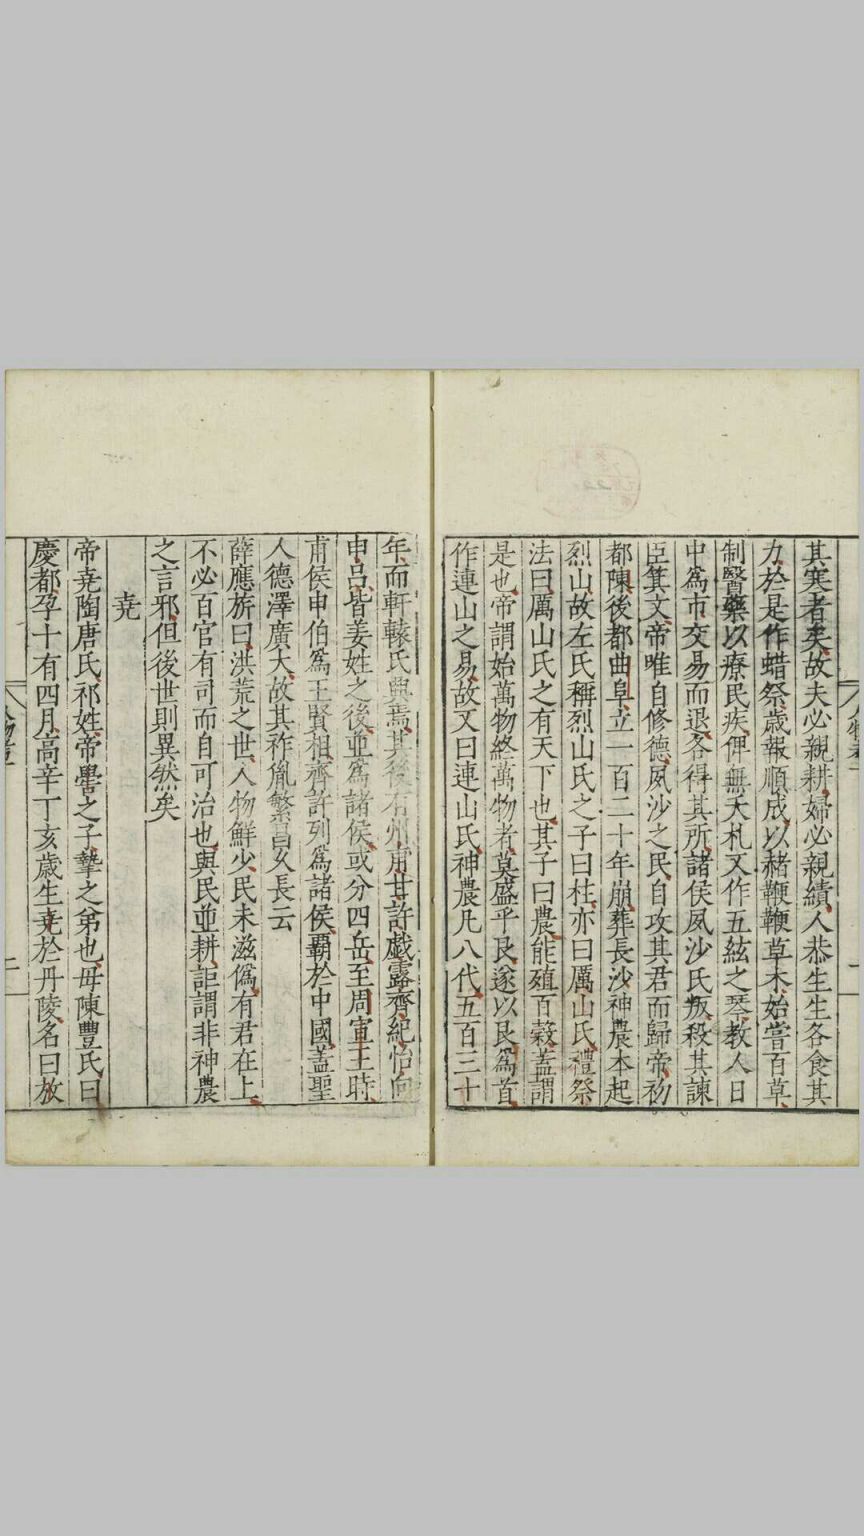 其寒者矣故夫必親耕婦必親績人恭生生各食其
力於是作蜡祭歳報順成以赭鞭鞭草木始嘗百草
制醫藥以療民疾俾無夭札又作五絃之琴教人日
中爲市交易而退各得其所諸侯夙沙氏叛殺其諫
臣箕文帝唯自修德夙沙之民自攻其君而歸帝初
都陳後都曲阜立一百二十年崩葬長沙神農本起
烈山故左氏稱烈山氏之子曰柱亦曰厲山氏禮祭
法曰厲山氏之有天下也其子曰農能殖百穀蓋謂
是也帝謂始萬物終萬物者莫盛乎艮遂以艮爲首
作連山之易故又曰連山氏神農凡八代五百三十
年而軒轅氏興焉其後有州甫甘許戯露齊紀怡向
申呂皆姜姓之後並爲諸侯或分四岳至周宣王時
甫侯申伯爲王賢相齊許列爲諸侯覇於中國蓋聖
人德澤廣大故其祚胤繁昌久長云
薛應旂曰洪荒之世人物鮮少民未滋僞有君在上
不必百官有司而自可治也與民並耕詎謂非神農
之言邪但後世則異然矣
堯
帝堯陶唐氏祁姓帝嚳之子摯之弟也毋陳豐氏曰
慶都孕十有四月高辛丁亥歳生堯於丹陵名曰放